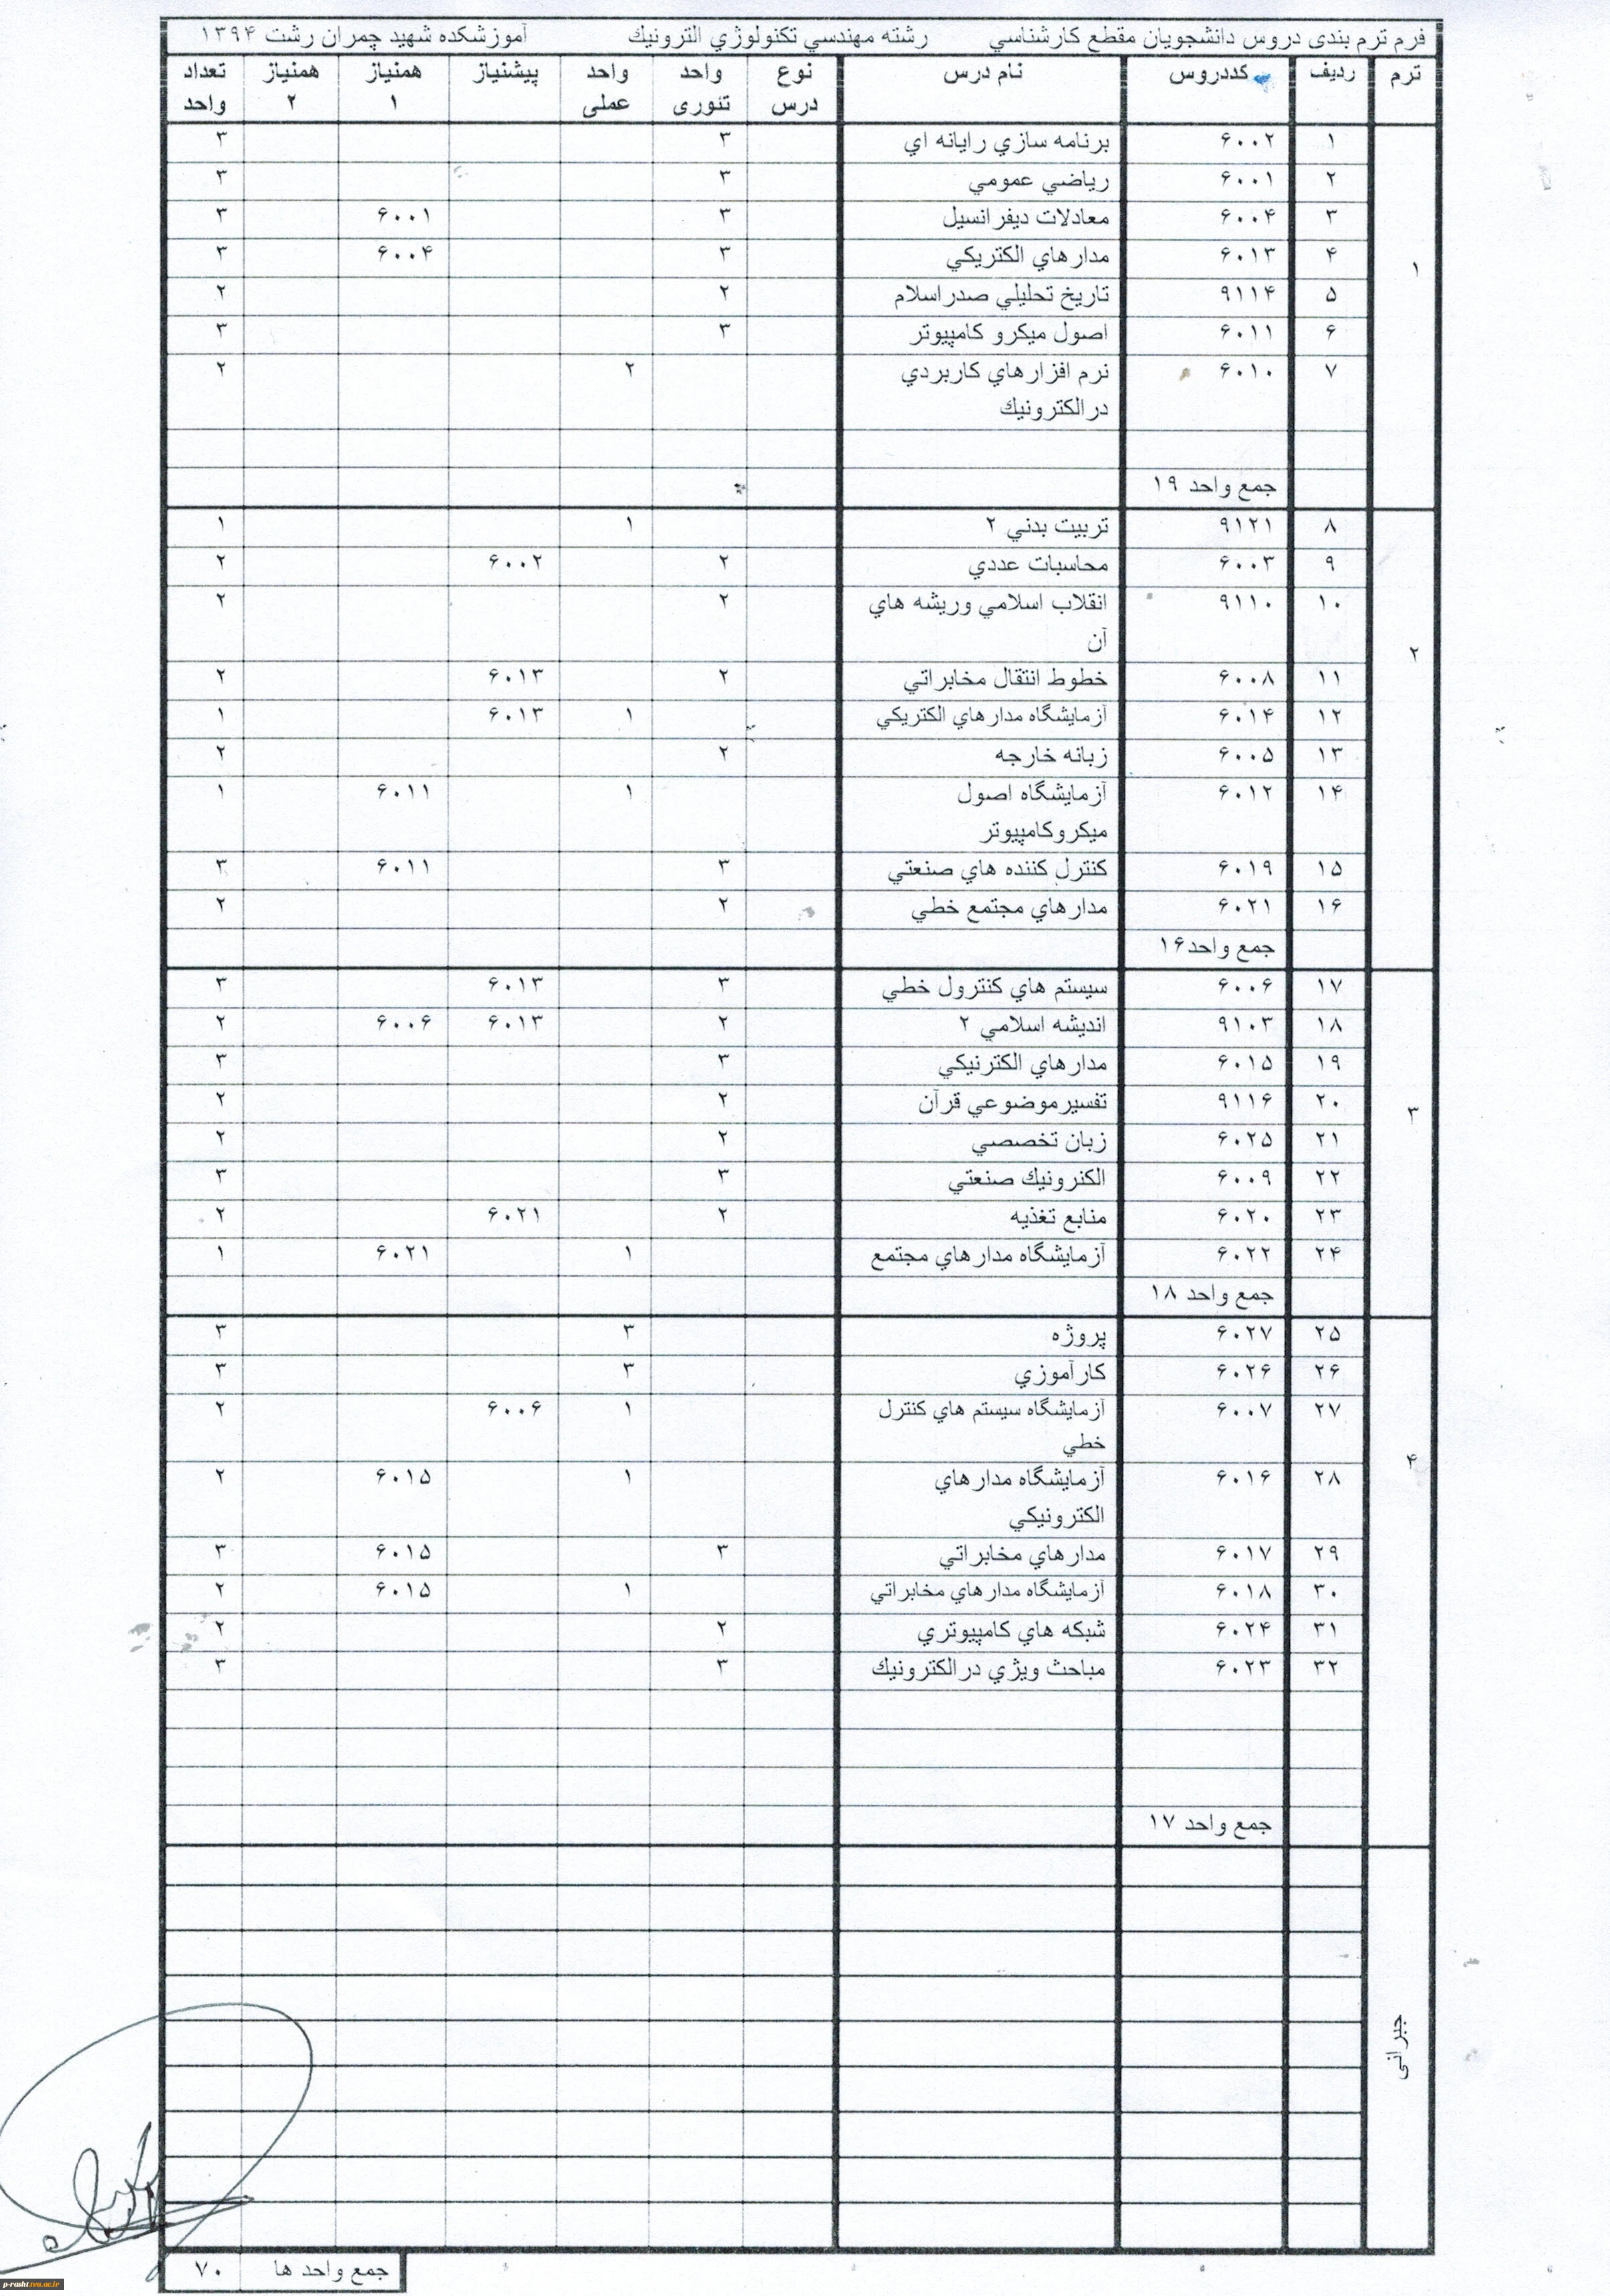 فرم ترم بندی دروس دانشجویان مقطع کارشناسي رشته مهندسي تکنولوژي الترونيك آموزشکده شهید چمران رشت ۱۳۹۴
ترم ردیف کددروس نام درس نوع درس واحد تئوری واحد عملی پیشنیاز همنیاز ۱ همنیاز ۲ تعداد واحد
۱
۱ ۶۰۰۲ برنامه سازي رایانه اي ۳ ۳
۲ ۶۰۰۱ ریاضي عمومي ۳ ۳
۳ ۶۰۰۴ معادلات دیفرانسیل ۳ ۶۰۰۱ ۳
۴ ۶۰۱۳ مدارهاي الکتریکي ۳ ۶۰۰۴ ۳
۵ ۹۱۱۴ تاریخ تحلیلي صدراسلام ۲ ۲
۶ ۶۰۱۱ اصول میکرو کامپیوتر ۳ ۳
۷ ۶۰۱۰ نرم افزارهاي کاربردي ۲ ۲
درالکترونیك
جمع واحد ۱۹
۲
۸ ۹۱۲۱ تربیت بدني ۲ ۱ ۱
۹ ۶۰۰۳ محاسبات عددي ۲ ۶۰۰۲ ۲
۱۰ ۹۱۱۰ انقلاب اسلامي وریشه هاي ۲ ۲
آن
۱۱ ۶۰۰۸ خطوط انتقال مخابراتي ۲ ۶۰۱۳ ۲
۱۲ ۶۰۱۴ آزمایشگاه مدارهاي الکتریکي ۱ ۶۰۱۳ ۱
۱۳ ۶۰۰۵ زبانه خارجه ۲ ۲
۱۴ ۶۰۱۲ آزمایشگاه اصول ۱ ۶۰۱۱ ۱
میکروکامپیوتر
۱۵ ۶۰۱۹ کنترل کننده هاي صنعتي ۳ ۶۰۱۱ ۳
۱۶ ۶۰۲۱ مدارهاي مجتمع خطي ۲ ۲
جمع واحد۱۶
۳
۱۷ ۶۰۰۶ سیستم هاي کنترول خطي ۳ ۶۰۱۳ ۳
۱۸ ۹۱۰۳ اندیشه اسلامي ۲ ۲ ۶۰۱۳ ۶۰۰۶ ۲
۱۹ ۶۰۱۵ مدارهاي الکترنیکي ۳ ۳
۲۰ ۹۱۱۶ تفسیرموضوعي قرآن ۲ ۲
۲۱ ۶۰۲۵ زبان تخصصي ۲ ۲
۲۲ ۶۰۰۹ الکنرونیك صنعتي ۳ ۳
۲۳ ۶۰۲۰ منابع تغذیه ۲ ۶۰۲۱ ۲
۲۴ ۶۰۲۲ آزمایشگاه مدارهاي مجتمع ۱ ۶۰۲۱ ۱
جمع واحد ۱۸
۴
۲۵ ۶۰۲۷ پروژه ۳ ۳
۲۶ ۶۰۲۶ کارآموزي ۳ ۳
۲۷ ۶۰۰۷ آزمایشگاه سیستم هاي کنترل ۱ ۶۰۰۶ ۲
خطي
۲۸ ۶۰۱۶ آزمایشگاه مدارهاي ۱ ۶۰۱۵ ۲
الکترونیکي
۲۹ ۶۰۱۷ مدارهاي مخابراتي ۳ ۶۰۱۵ ۳
۳۰ ۶۰۱۸ آزمایشگاه مدارهاي مخابراتي ۱ ۶۰۱۵ ۲
۳۱ ۶۰۲۴ شبکه هاي کامپیوتري ۲ ۲
۳۲ ۶۰۲۳ مباحث ویژي درالکترونیك ۳ ۳
جمع واحد ۱۷
جبرانی
جمع واحد ها ۷۰
p-rasht.tvu.ac.ir